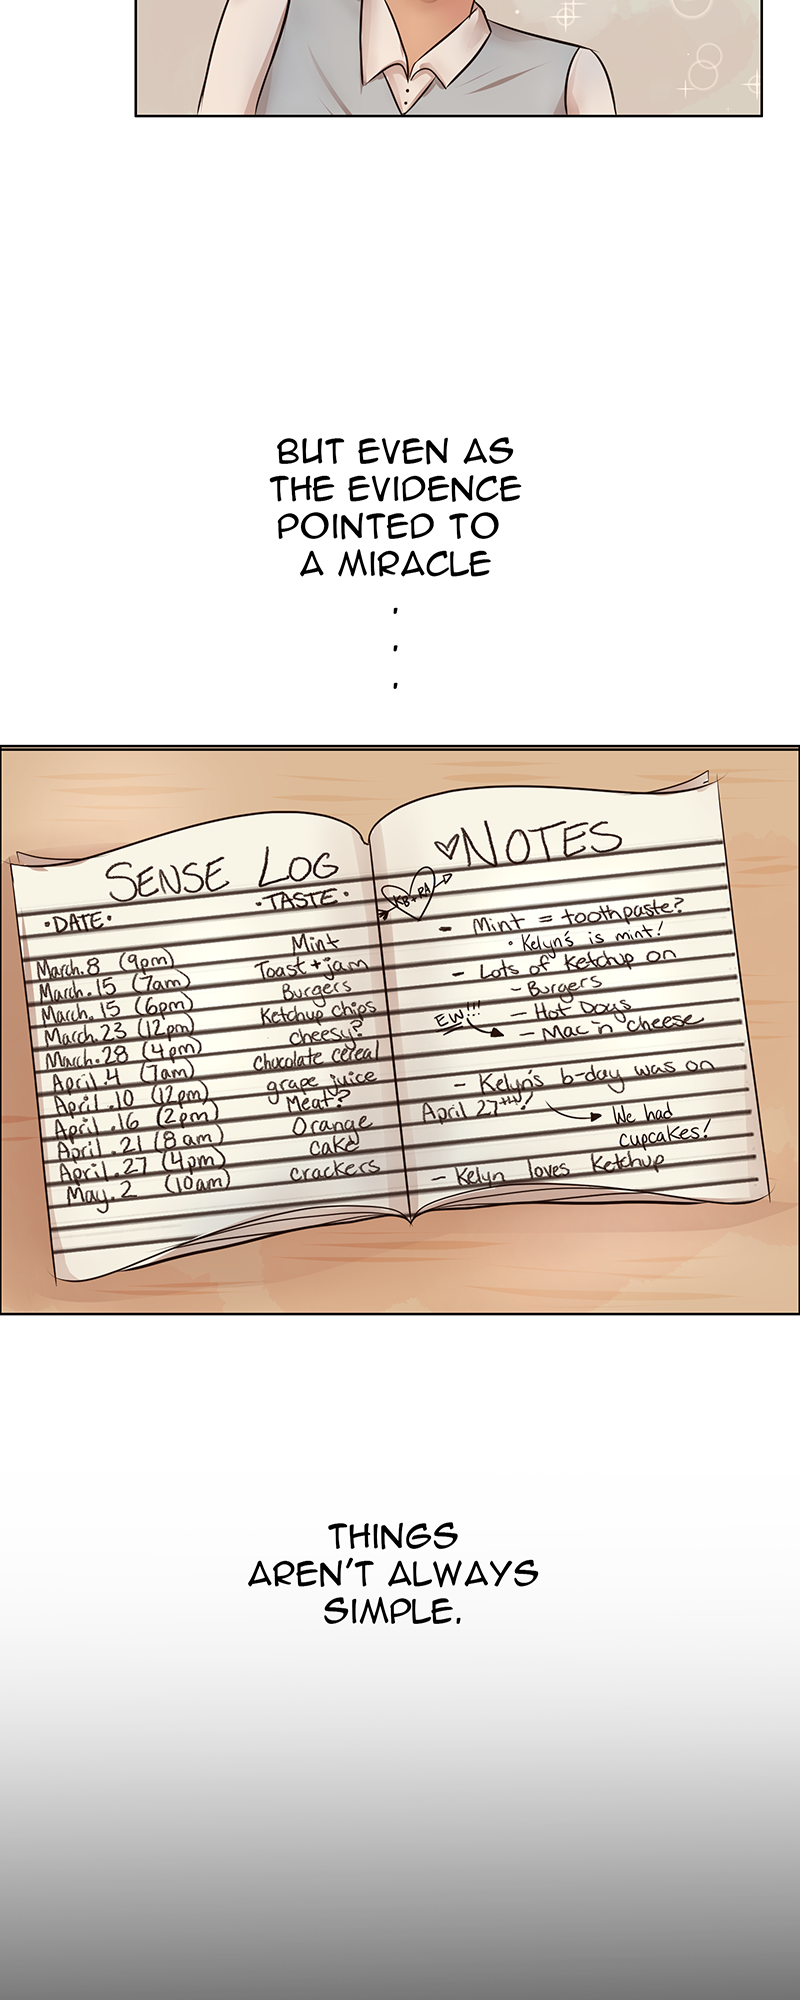 BUT EVEN AS
THE EVIDENCE
POINTED TO
A MIRACLE
.
.
.
SENSE LOG
•DATE• •TASTE•
March. 8 (9pm) Mint
March. 15 (7am) Toast + jam
March. 15 (6pm) Burgers
March. 23 (12pm) Ketchup chips
March. 28 (4pm) cheesy?
April. 4 (7am) Chocolate cereal
April. 10 (12pm) grape juice
April. 16 (2pm) Meat?
April. 21 (8am) Orange
April. 27 (4pm) cake
May. 2 (10am) crackers
♡NOTES
KB + PA
- Mint = toothpaste?
• Kelyn's is mint!
- Lots of Ketchup on
- Burgers
- Hot Dogs
EW!!!
- Mac 'n' cheese
- Kelyn's b-day was on
April 27th!
We had
cupcakes!
- Kelyn loves Ketchup
THINGS
AREN'T ALWAYS
SIMPLE.